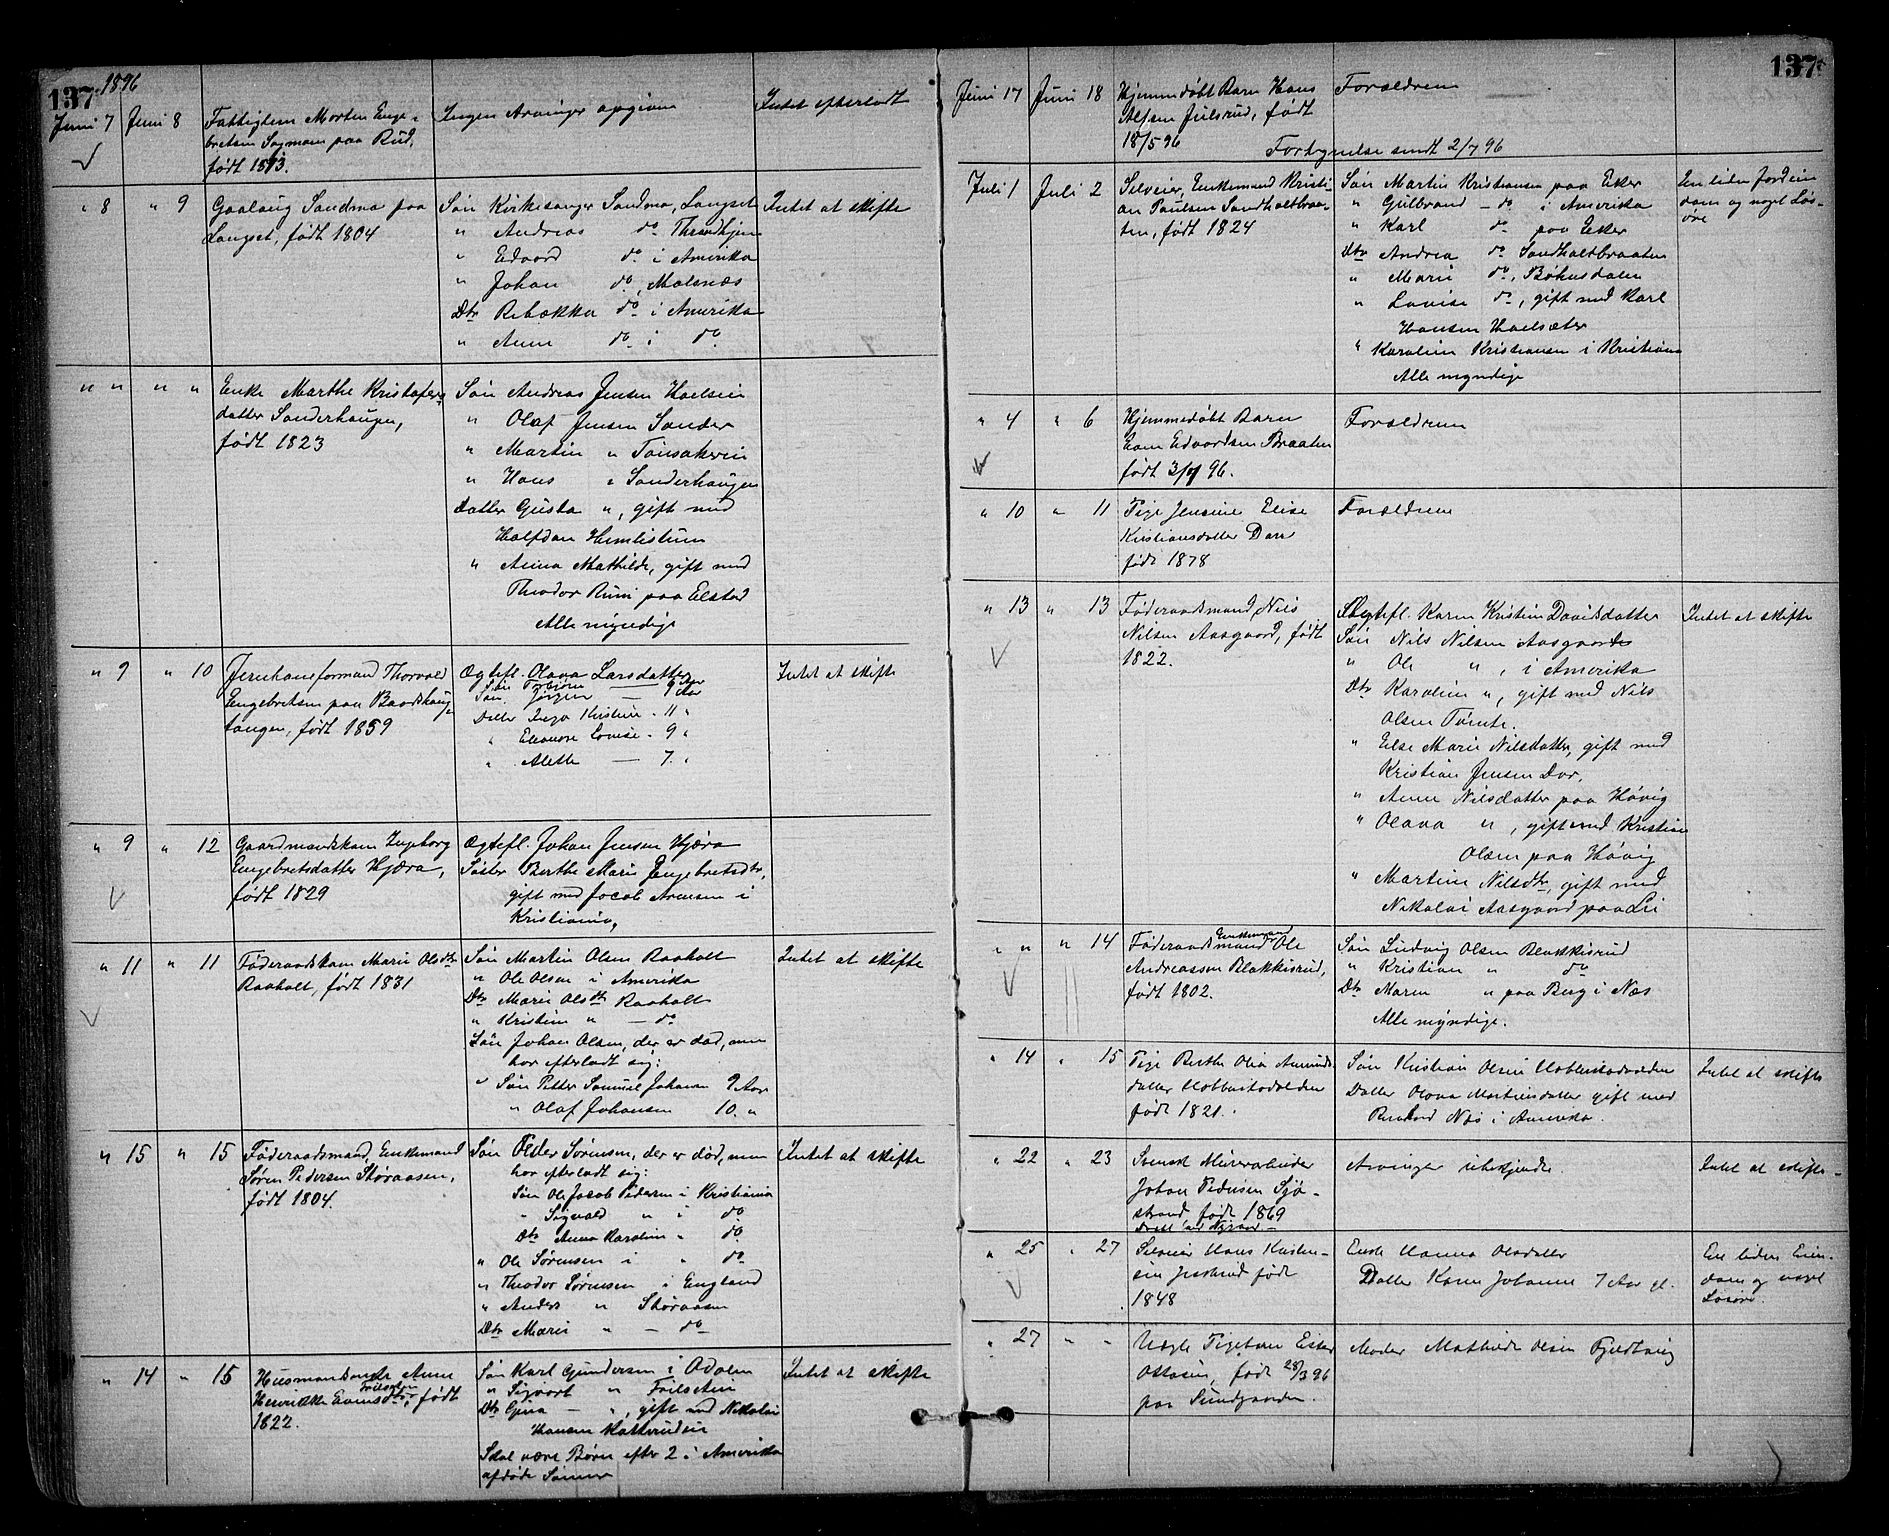 137
1896
Juni 7 Juni 8 Fattiglem Morten Enge- Ingen Arvinger opgivne Intet efterladt
bretsen Sagmoen paa Rud,
født 1813.
" 8 " 9 Gaalaug Sandmo paa Søn Kirkesanger Sandmo, Langset Intet at skifte
Langset, født 1804 " Andreas do Throndhjem
" Edvard do i Amerika
" Johan do, Malsnæs
Dtr Rebekka do i Amerika
" Anne do i do
" " " " Enke Marthe Kristofers- Søn Andreas Jensen
datter Sanderhaugen, " Olaf Jensen Sander
født 1823 " Martin "
" Hans " Sanderhaugen
Datter Gusta ", gift med
Halfdan
" Anna Mathilde, gift med
Theodor Runi paa Elstad
Alle myndige
" 9 " 10 Jernbaneformand Thorvald Ægtefl. Olava Larsdatter Intet at skifte
Engebretsen paa Søn Torbjørn — 9 Aar
tangen, født 1859 Søn Jørgen —
Datter Inga Kristine - 11 "
" Eleonore Lovise - 9 "
" Alette — 7 "
" 9 " 12 Gaardmandskone Ingeborg Ægtefl. Johan Jensen Hjæra
Engebretsdatter Hjæra, Søster Berthe Marie Engebretsdtr,
født 1829 gift med Jacob Arnesen i
Kristiania,
" 11 " 11 Føderaadskone Marie Olsdtr Søn Martin Olsen Raaholt Intet at skifte
Raaholt, født 1831 " Ole Olsen i Amerika
Dtr Marie Olsdtr Raaholt
" Kristine " — do
Søn Johan Olsen, der er død, men
har efterladt sig:
" Søn Petter Samuel Johansen 9 Aar
" Olaf Johansen 10 "
" 15 " 15 Føderaadsmand, Enkemand Søn Peder Sørensen, der er død, men Intet at skifte
Søren Pedersen Støraasen, har efterladt sig:
født 1804. Søn Ole Jacob Pedersen i Kristiania
" Sigvald " i do
Dtr Anna Karoline " do
" Ole Sørensen i " do
" Theodor Sørensen i England
" Anders " Støraasen
Dtr Marie " — do
" 14 " 15 Husmandsenke Anne Søn Karl Gundersen i Odalen Intet at skifte
Henrikke Evensdtr, født " Sigvart "
1822. Dtr Gina — ", gift med Nikolai
Hansen
Skal være Børn efter 2 i Amerika
afdøde Sønner
137
Juni 17 Juni 18 Hjemmedøbt Barn Hans Forældrene
Alfsen Julsrud, født
18/5 96 Fortegnelse sendt 2/7 96
Juli 1 Juli 2 Selveier, Enkemand Kristi- Søn Martin Kristiansen paa Eker En liden Jordeien-
an Paulsen Sandholtbraa- " Gulbrand - do i Amerika dom og noget Løs-
ten, født 1824 " Karl do paa Eker øre
Dtr Andrea do Sandholtbraaten
" Marie do, Bøhnsdalen
" Lovise do, gift med Karl
Hansen
" Karoline Kristiansen i Kristiania
Alle myndige
" 4 " 6 Hjemmedøbt Barn Forældrene
Edvardsen Braaten
født 3/7 96.
" 10 " 11 Pige Jensine Elise Forældrene
Kristiansdatter Darr
født 1878
" 13 " 13 Føderaadsmand Nils Ægtefl. Karen Kristine Davidsdatter Intet at skifte
Nilsen Aasgaard, født Søn Nils Nilsen Aasgaard
1822. " Ole ", i Amerika
Dtr Karoline ", gift med Nils
Olsen
" Else Marie Nilsdatter, gift med
Kristian Jensen Dar,
" Anne Nilsdatter paa Høvig
" Olava ", gift med Kristian
Olsen paa Høvig
" Martine Nilsdtr, gift med
Nikolai Aasgaard paa Li
" " " 14 Føderaadsmand Enkemand Ole Søn Ludvig Olsen Blakkisrud
Andreassen Blakkisrud, " Kristian " do
født 1802. Dtr Maren " paa Berg i Næs
Alle myndige.
" 14 " 15 Pige Berthe Olia Amunds- Søn Kristian Olsen Intet at skifte
datter Datter Olava Martinsdatter gift med
født 1821. Næs i Amerika.
" 22 " 23 Svensk Murerarbeider Arvinger ubekjendte. Intet at skifte.
Johan Pedersen Sjø-
strand, født 1869
" 25 " 27 Selveier Hans Enke Hanna Olsdatter En liden Eien-
født Datter Karen Johanne 7 Aar gl. dom og noget
1848 Løsøre.
" 27 " " Uægte Pigebarn Ester Moder Mathilde Olsen Fjeldtvig
født 28/3 96
paa Sundgaarden.